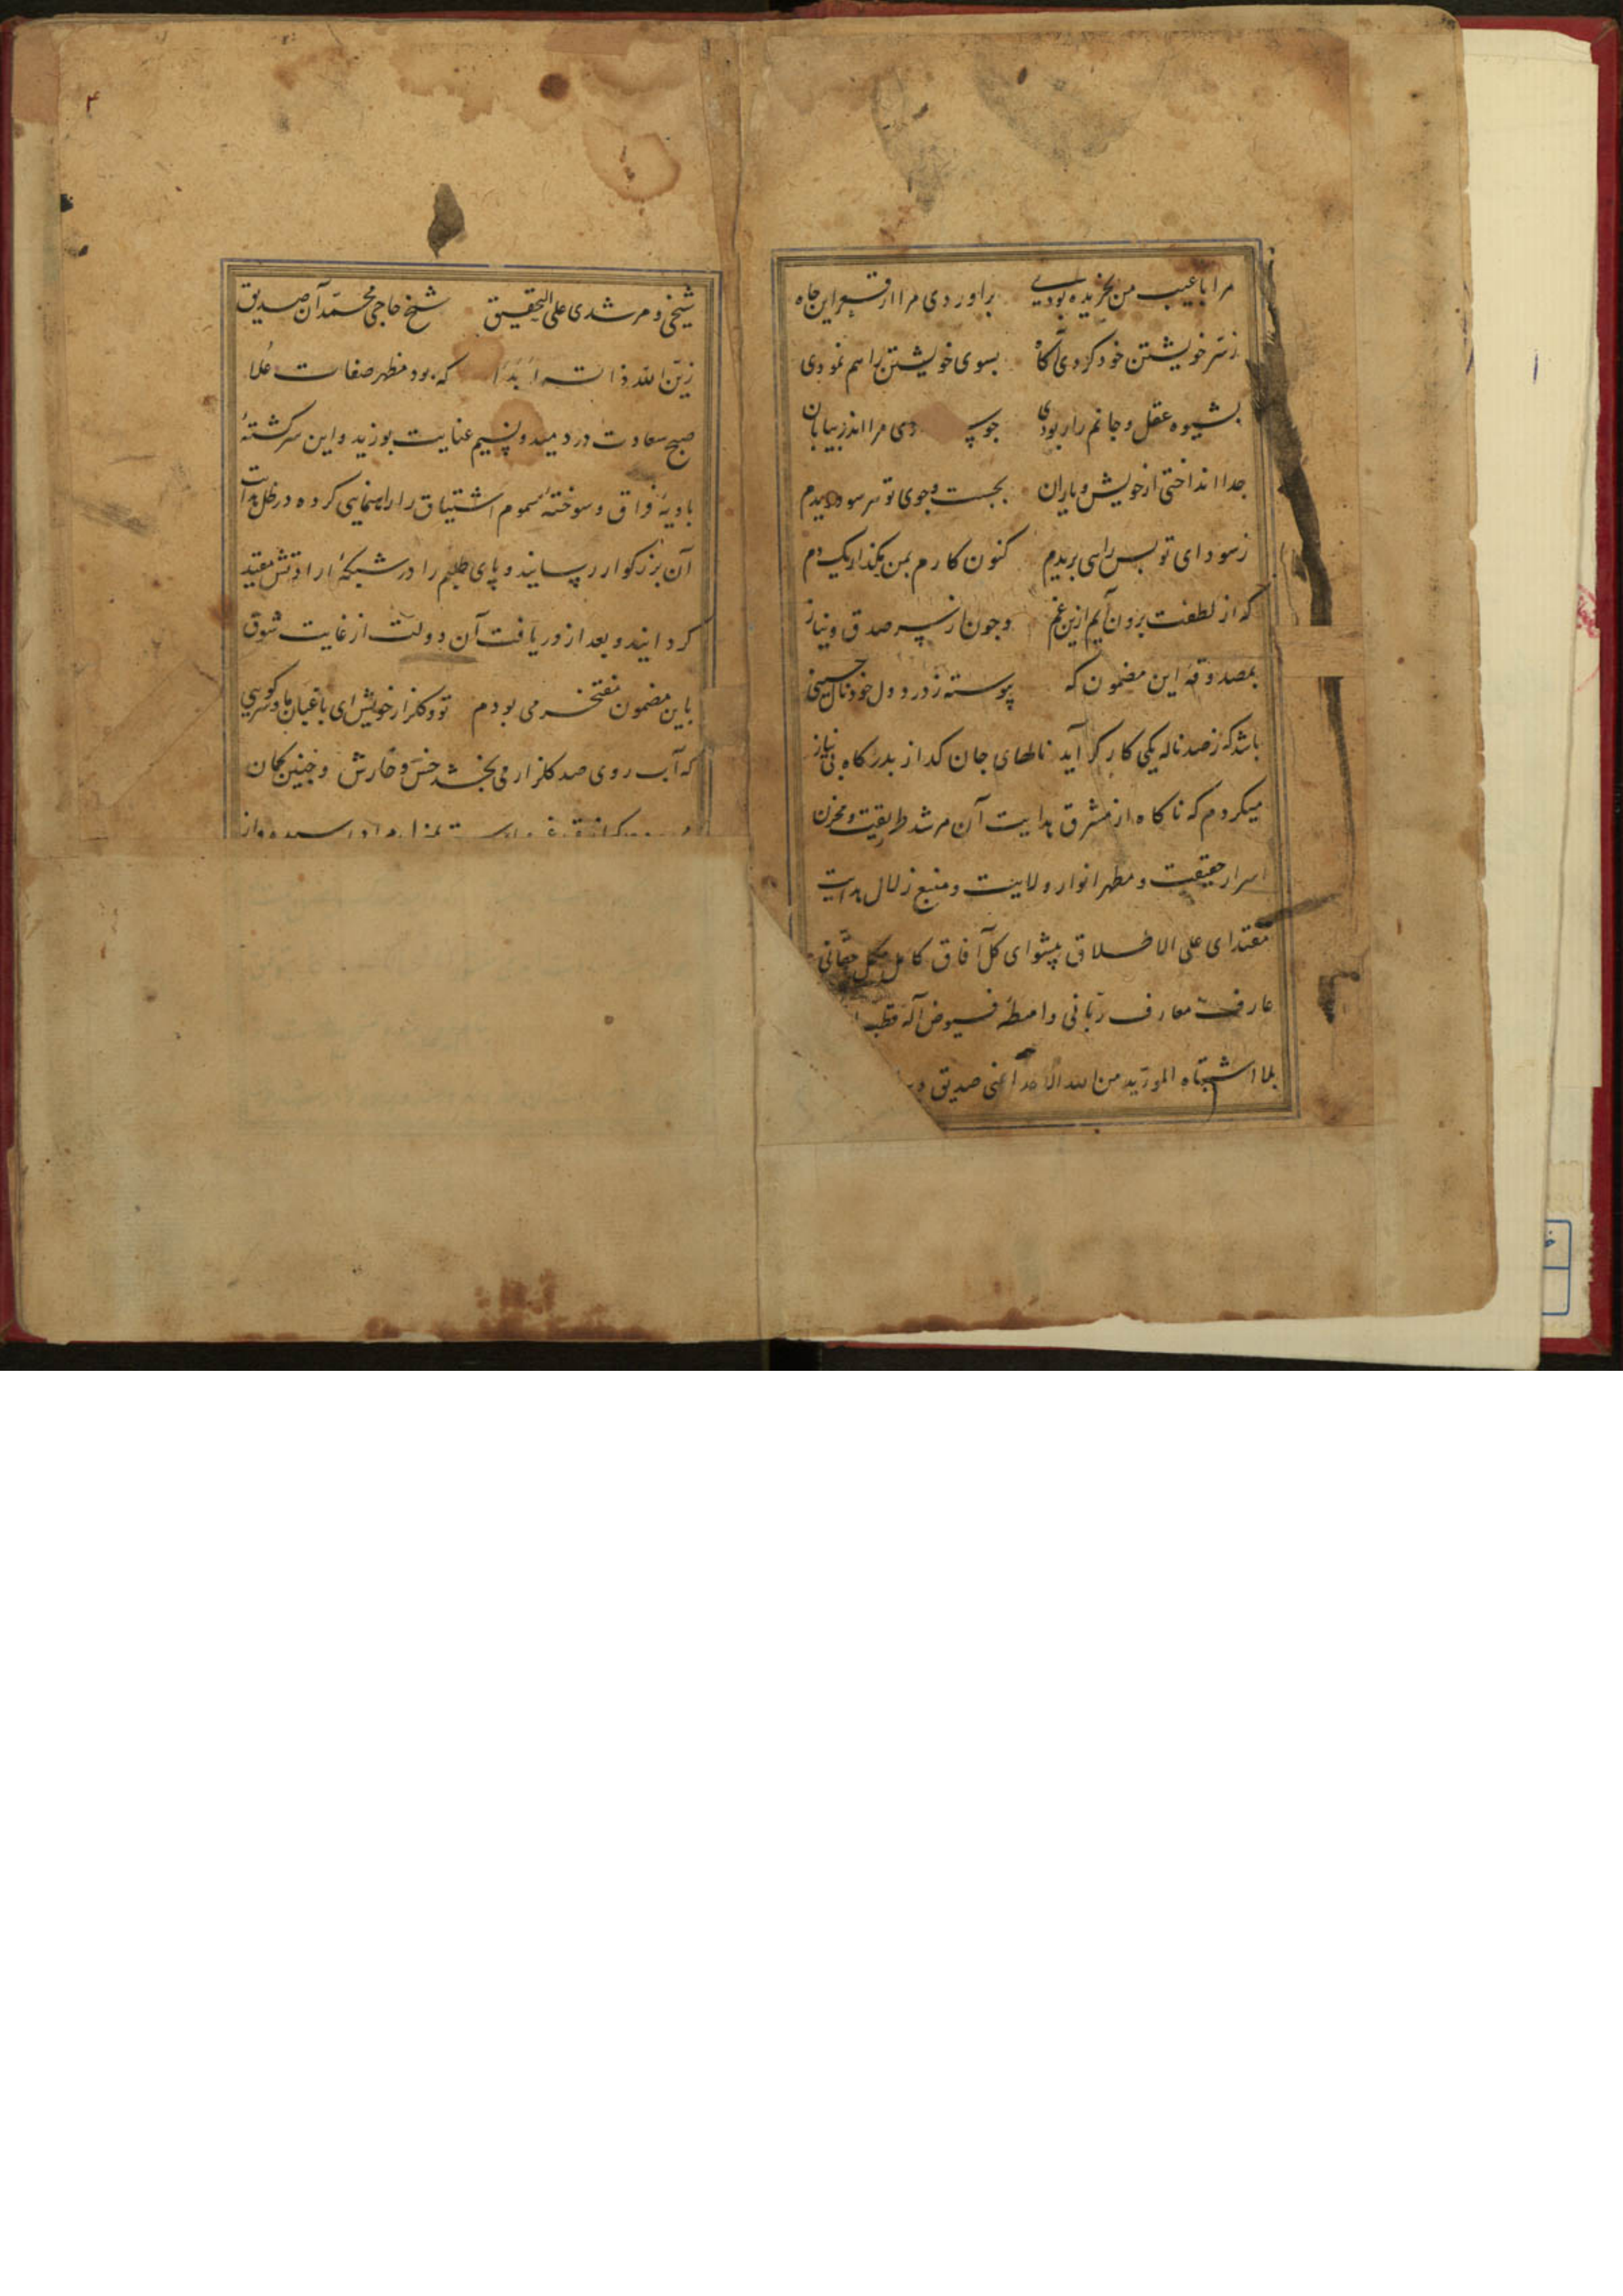 مرا با عیب من بخریده بودی براوردی مرا از قعر این چاه
ز سر خویشتن خود کردی آکاه بسوی خویشتن راهم نمودی
بشیوه عقل و جانم را ربودی جو دی مرا اندر بیابان
جدا انداختی از خویش و یاران بجست و جوی تو هر سو دویدم
ز سودای تو بس راهی بریدم کنون کارم بمن مکذار یک دم
که از لطفت برون آیم ازین غم و جون از سر صدق و نیاز
بمصدوقه این مضمون که پیوسته ز درد دل خود نال حسینی
باشد که ز صد ناله یکی کارکر آید نالهای جان کداز بدرکاه بی نیاز
میکردم که ناکاه از مشرق هدایت آن مرشد طریقت و مخزن
اسرار حقیقت و مظهر انوار ولایت و منبع زلال هدایت
مقتدای علی الاطلاق پیشوای کل آفاق کامل مکمل حقانی
عارف معارف ربانی واسطه فیوض آله قطب
بلا اشتباه الموید من الله الاحد اعنی صدیق
۴
شیخی و مرشدی علی التحقیق شیخ حاجی محمد آن صدیق
زین الله ذاته ابدا که بود مظهر صفات علا
صبح سعادت در دمید و نسیم عنایت بوزید و این سرکشته
بادیه فراق و سوخته سموم اشتیاق را راهنمایی کرده در ظل هدایت
آن بزرکوار رسانید و پای طلبم را در شبکه ارادتش مقید
کردانید و بعد از دریافت آن دولت از غایت شوق
باین مضمون مفتخر می بودم تو و کلزار خویش ای باغبان ما و سر کویی
که آب روی صد کلزار می بخشد خس و خارش و جنین کمان